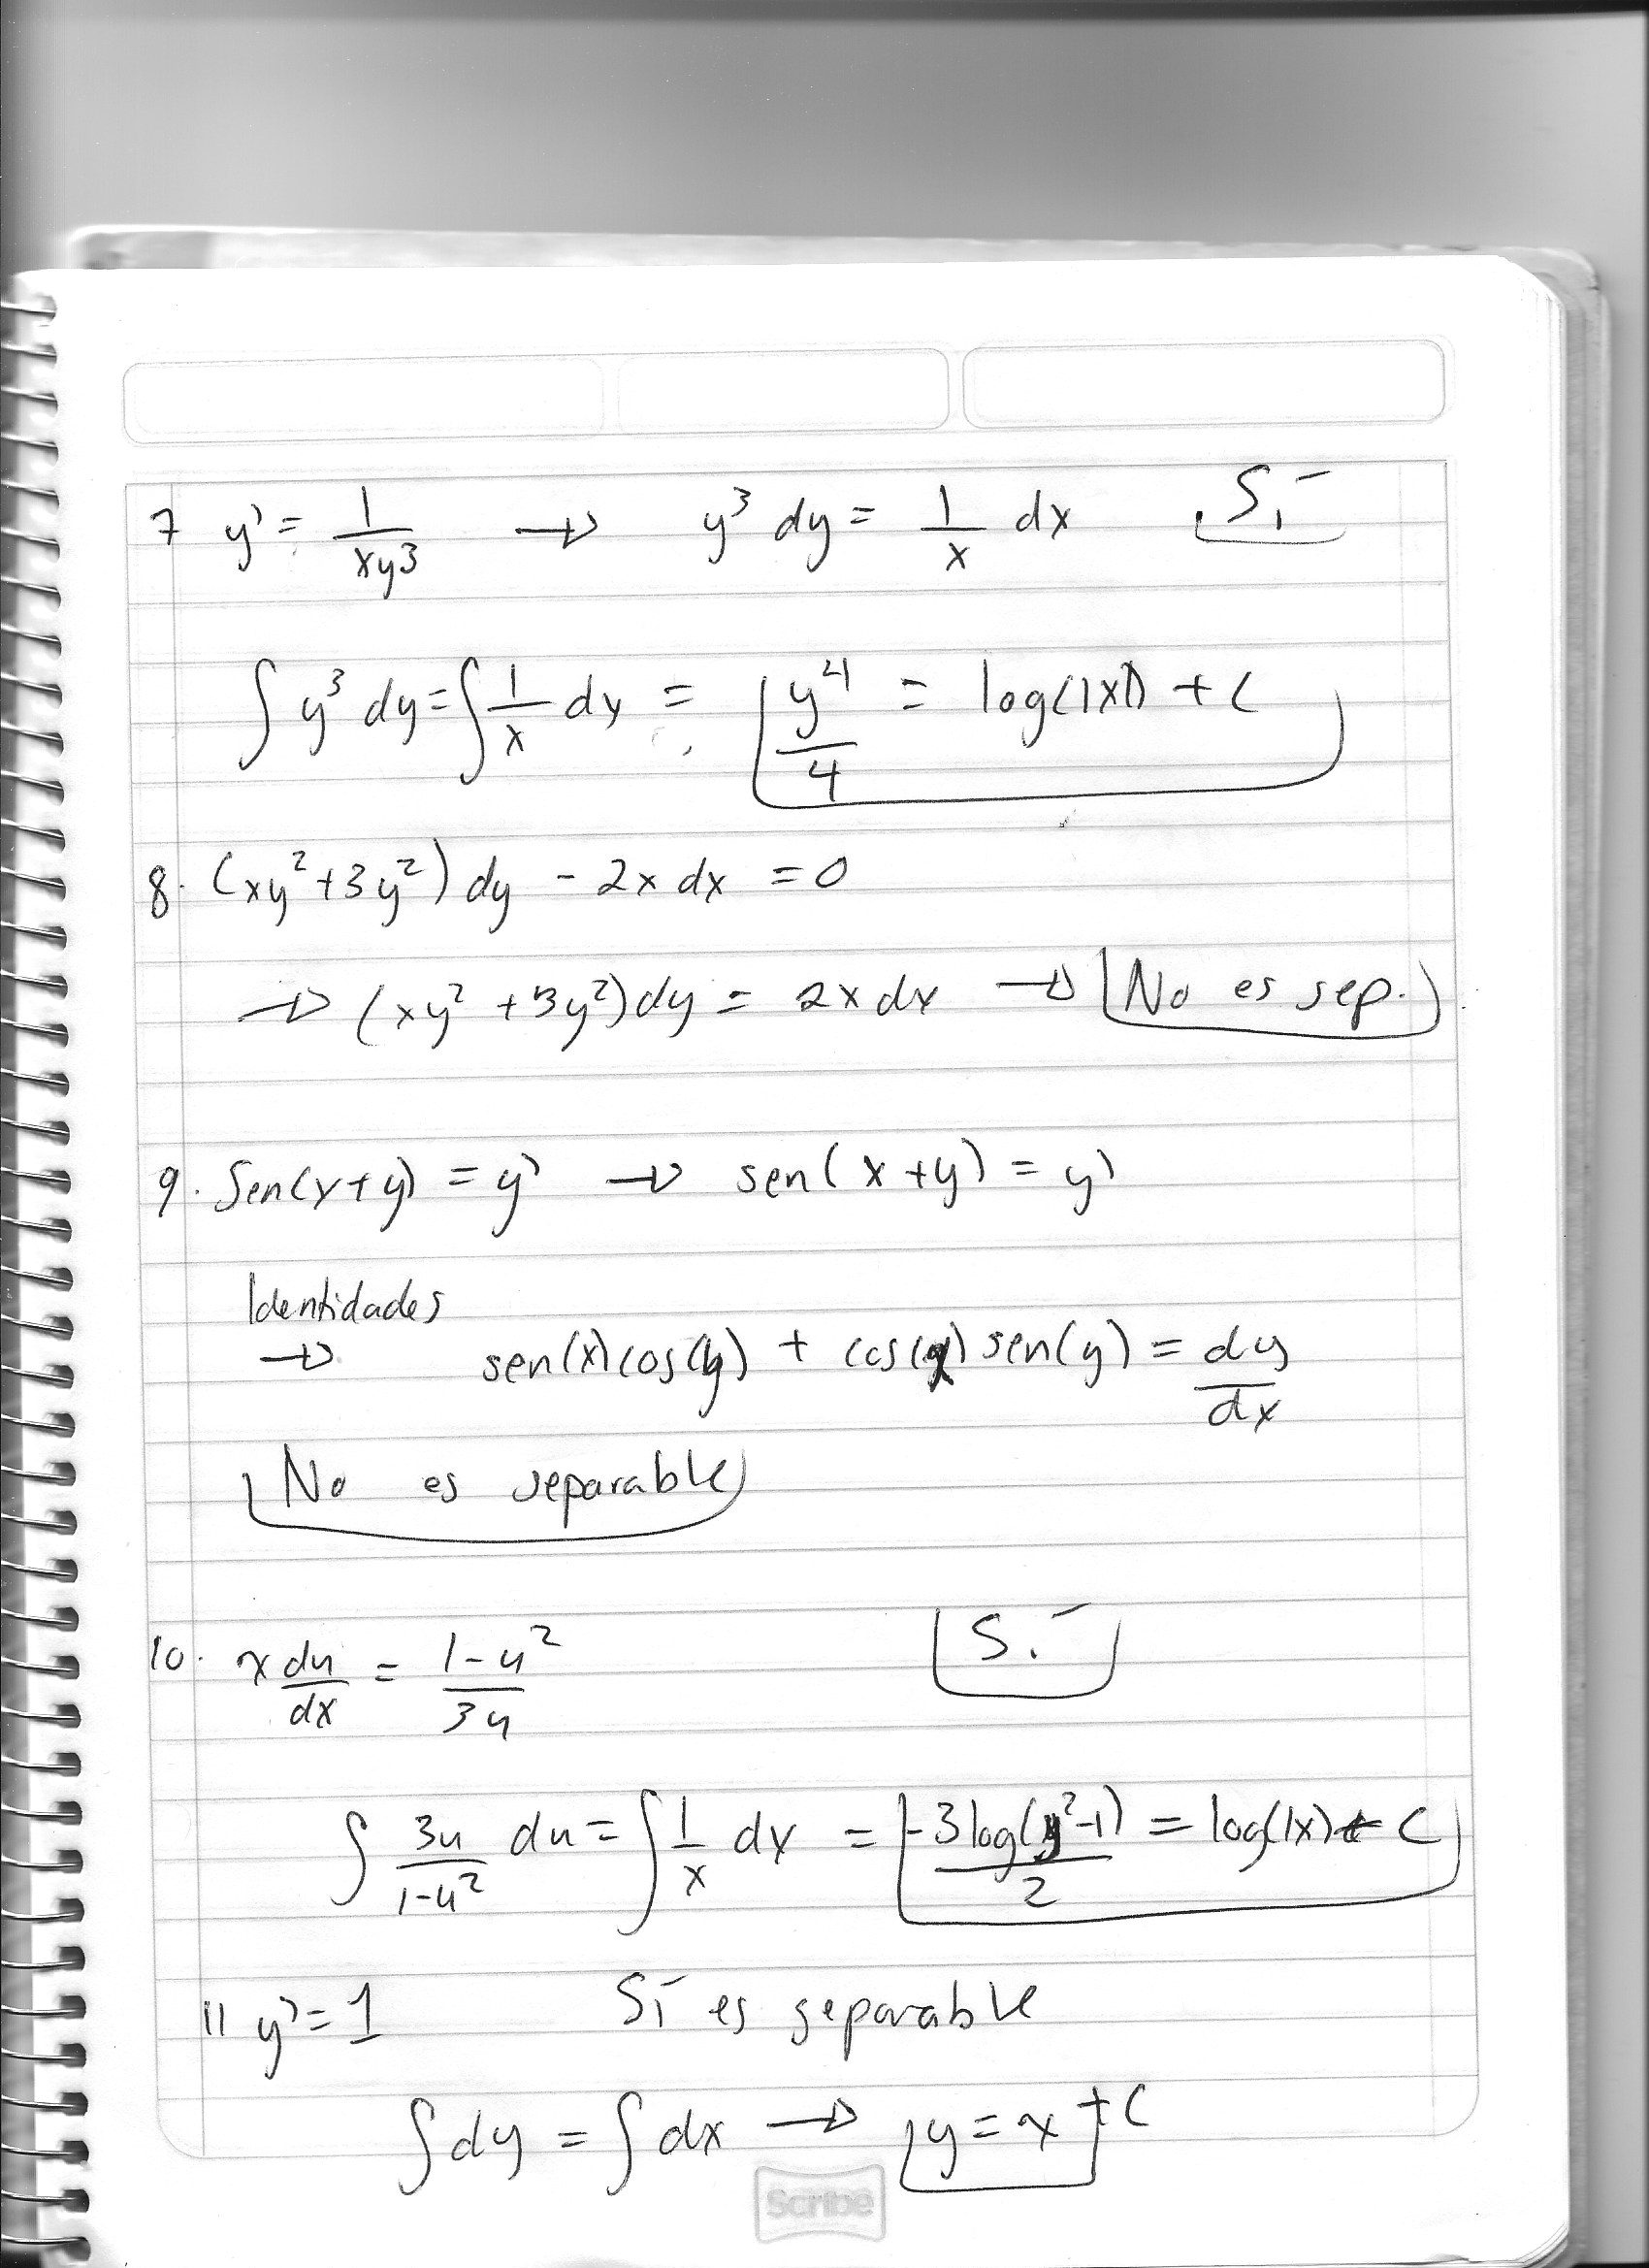 7 y' = 1/(xy³) → y³ dy = 1/x dx Sí
∫ y³ dy = ∫ 1/x dx = y⁴/4 = log(|x|) + C
8. (xy² + 3y²) dy - 2x dx = 0
→ (xy² + 3y²) dy = 2x dx → No es sep.
9. Sen(x+y) = y' → sen(x+y) = y'
Identidades
→ sen(x)cos(y) + cos(x)sen(y) = dy/dx
No es separable
10. x du/dx = (1-u²)/(3u) Sí
∫ 3u/(1-u²) du = ∫ 1/x dx = -3log(y²-1)/2 = log(|x) + C
11 y' = 1 Sí es separable
∫ dy = ∫ dx → y = x + C
Scribe